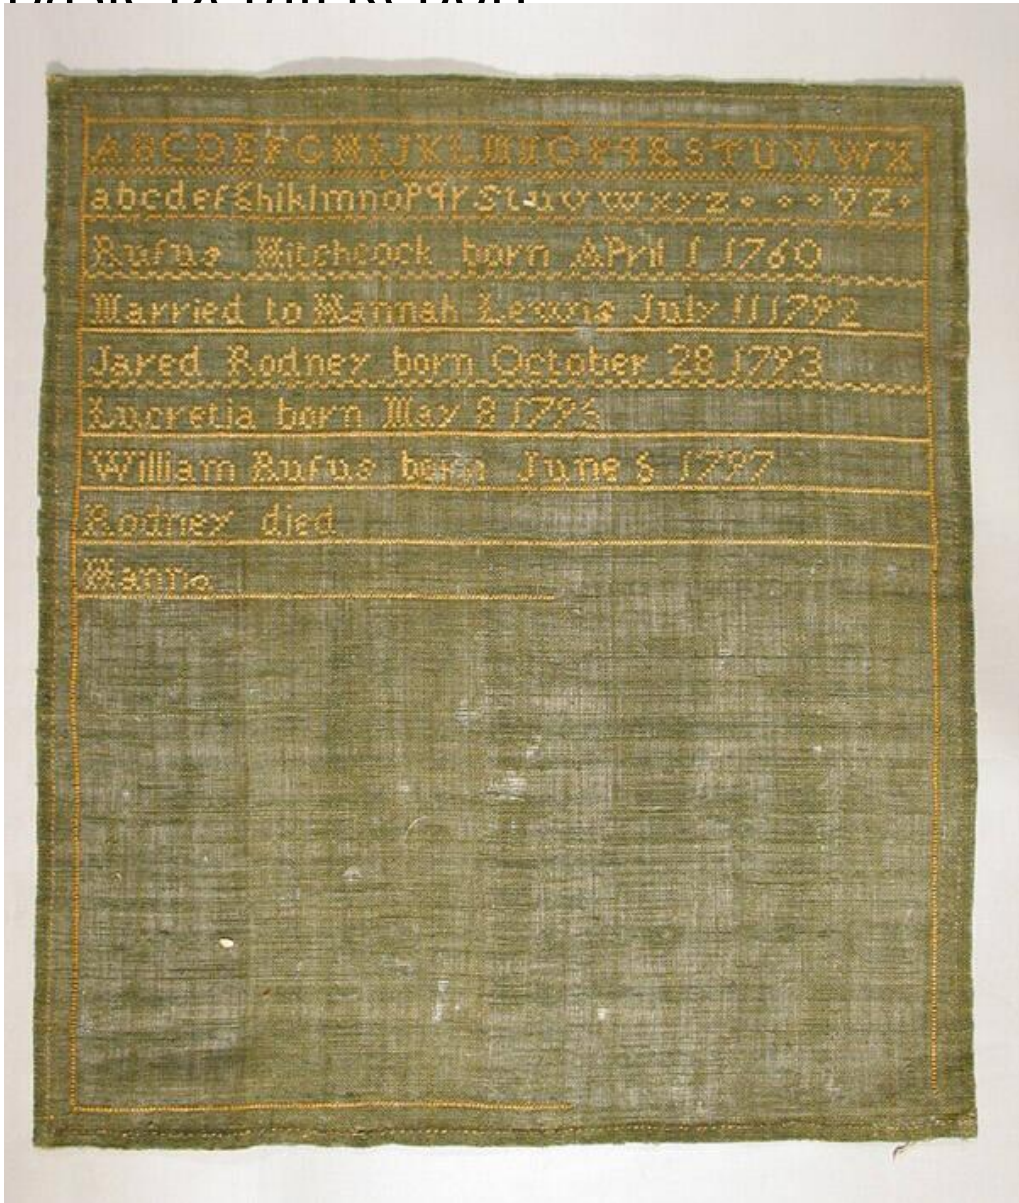 ABCDEFGHIJKLMNOPQRSTUVWX
abcdefghiklmnopqrstuvwxyz YZ
Rufus Hitchcock born APril 1 1760
Married to Hannah Lewis July 11 1792
Jared Rodney born October 28 1793
Lucretia born May 8
William Rufus born June 1797
Rodney died
Hanna